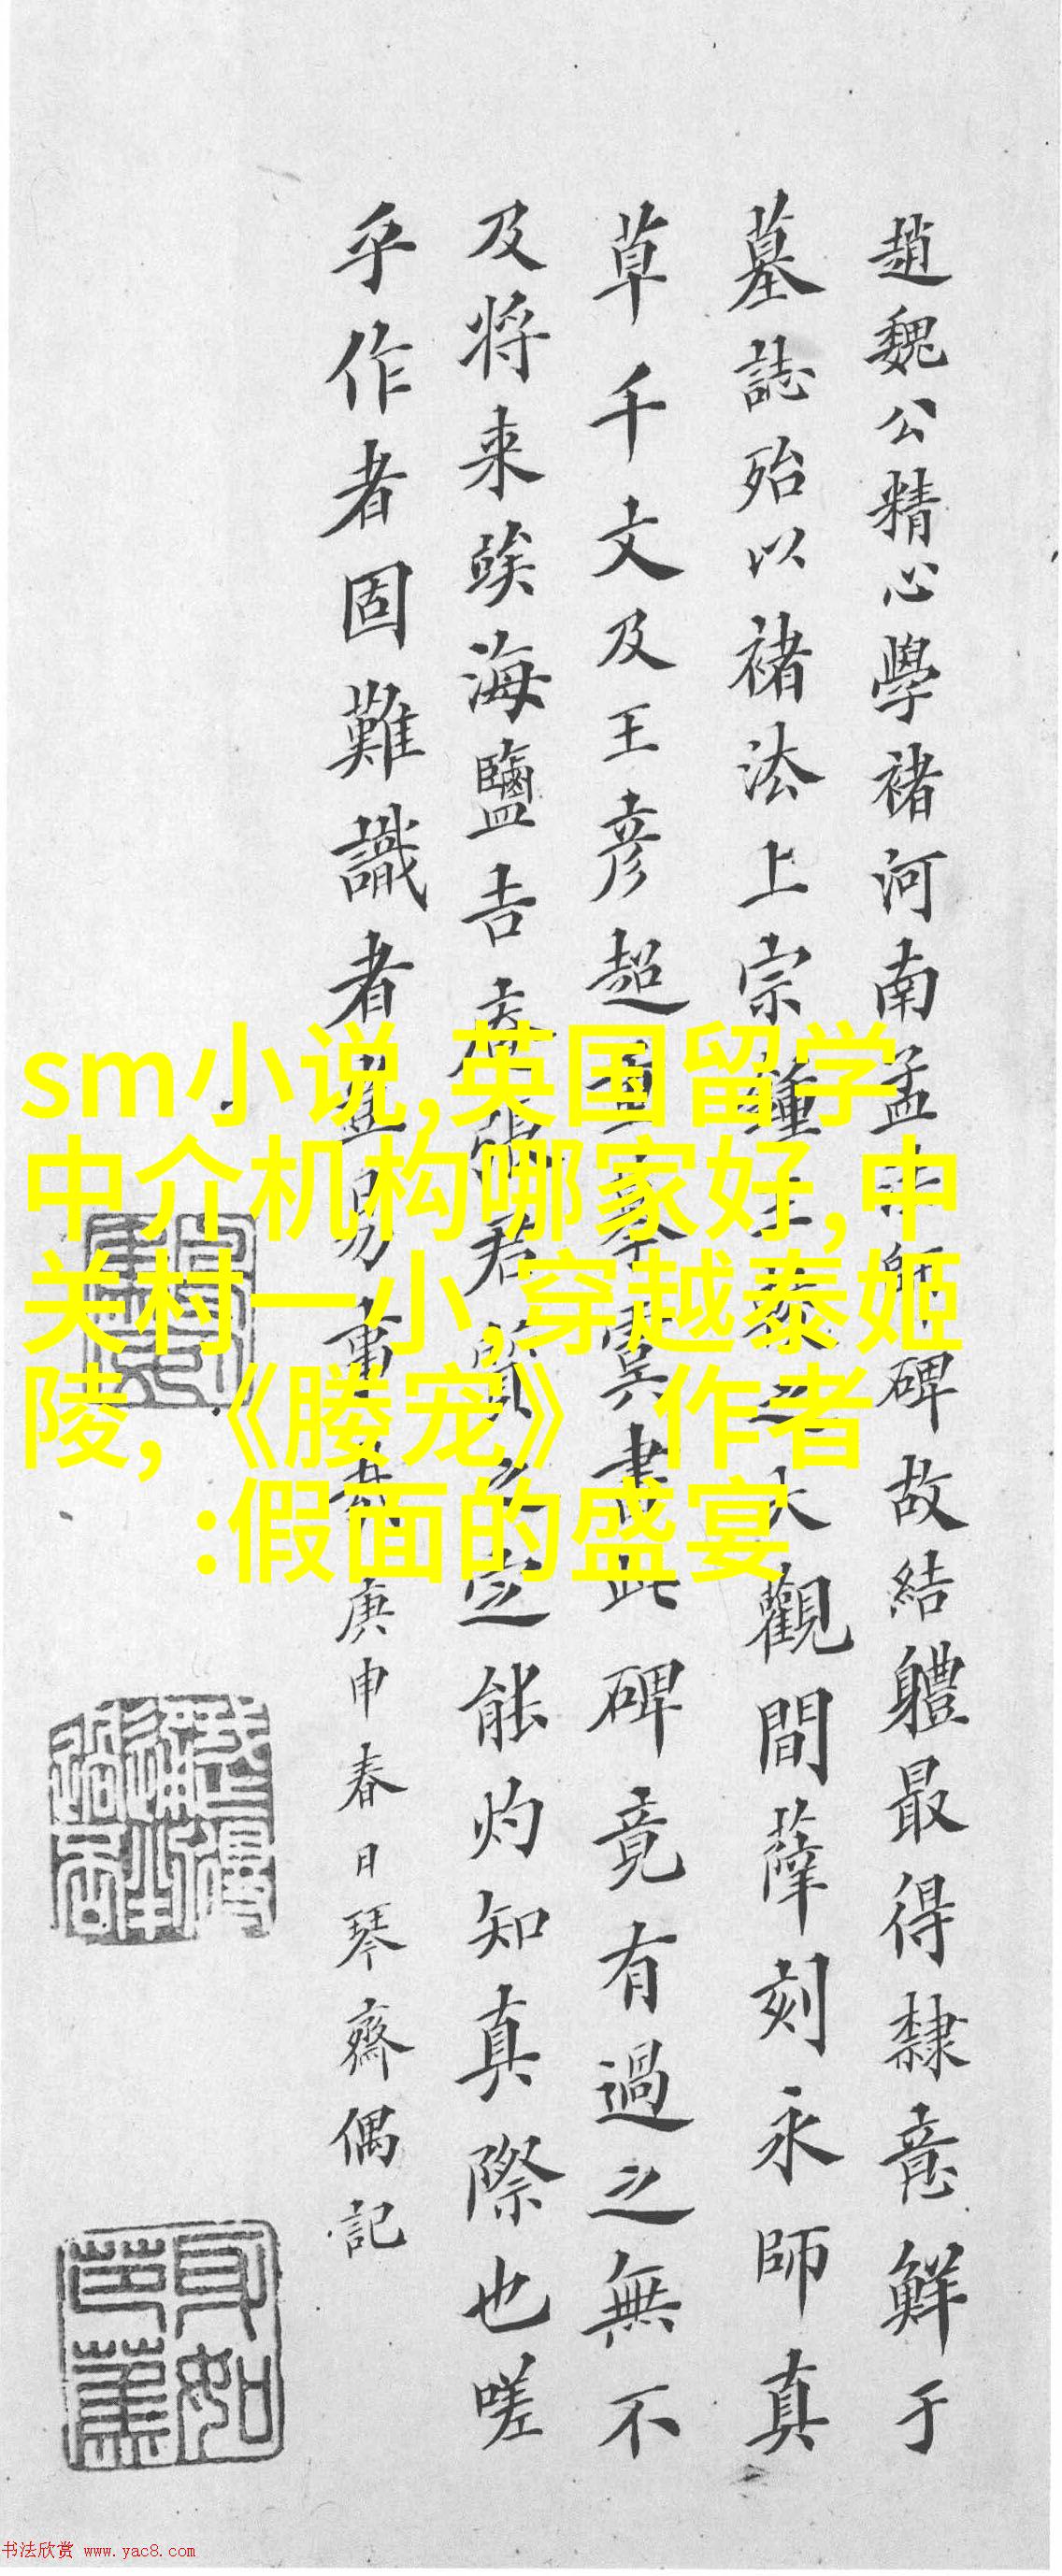 趙魏公精心學褚河南孟法師碑故結軆最得隸意鮮于
墓誌殆以褚法上宗鍾王蔡之大觀間薛刻永師真
草千文及王彦超重摹虞書此碑竟有過之無不
及将来竢海鹽吉在張君質之定能灼知真際也嗟
乎作者固難識者豈易事哉庚申春日琴齋偶記
sm小说,英国留学
中介机构哪家好,中
关村一小,穿越泰姬
陵,《媵宠》 作者
:假面的盛宴
书法欣赏 www.yac8.com